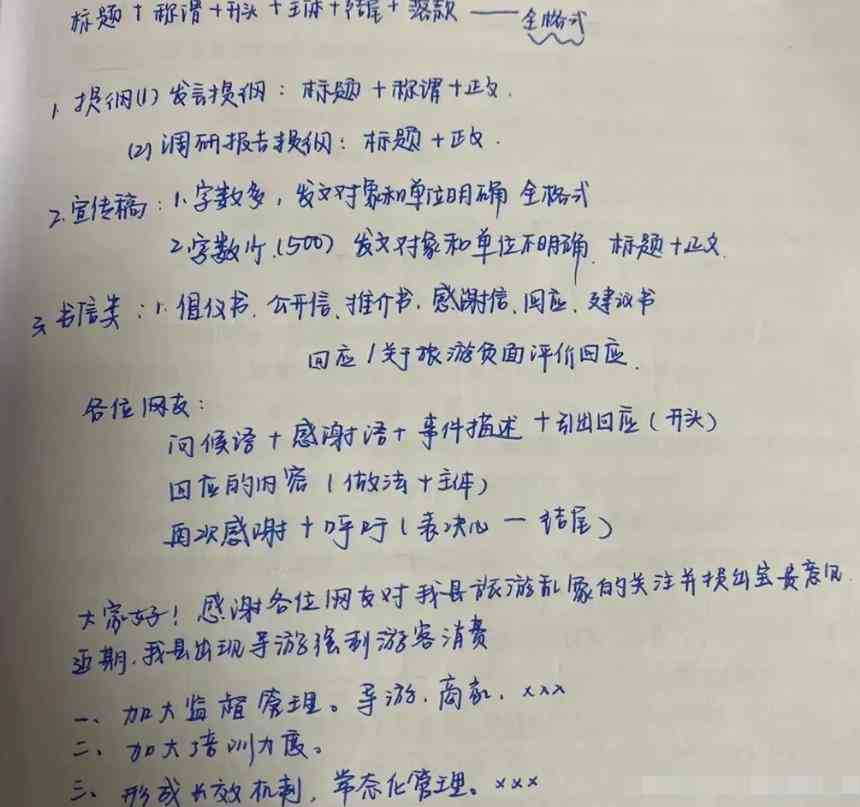 标题+称谓+开头+主体+结尾+落款——全格式
1. 提纲(1) 发言提纲：标题+称谓+正文.
(2) 调研报告提纲：标题+正文.
2. 宣传稿：1.字数多，发文对象和单位明确 全格式
2.字数少.(500) 发文对象和单位不明确. 标题+正文.
3. 书信类：1.倡仪书. 公开信、推介书. 感谢信、回应. 建议书
回应/关于旅游负面评价回应.
各位网友：
问候语+感谢语+事件描述+引出回应(开头)
回应的内容(做法+主体)
再次感谢+呼吁(表决心—结尾)
大家好！感谢各位网友对我县旅游乱象的关注并提出宝贵意见.
近期.我县出现导游强制游客消费
一、加大监督管理。导游.商家. xxx
二、加大培训力度。
三、形成长效机制，常态化管理。xxx